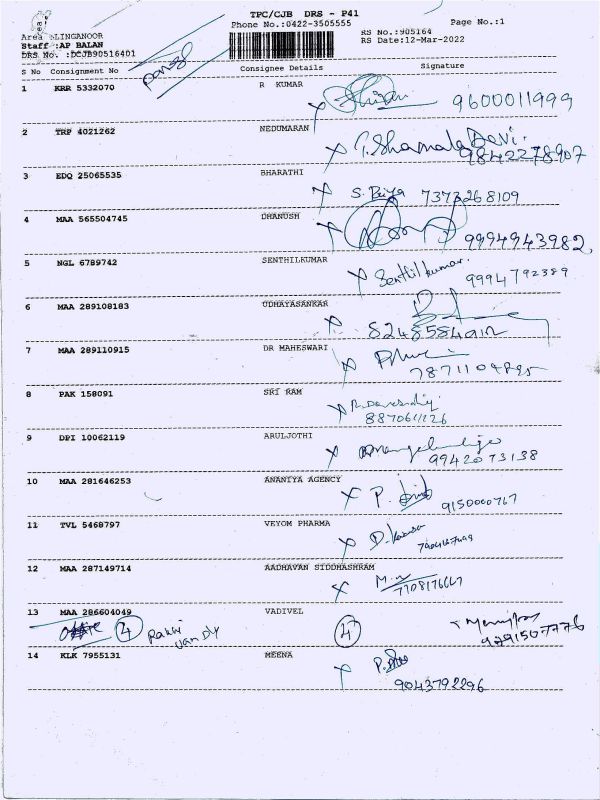 TPC/CJB DRS - P41
Phone No.:0422-3505555 Page No.:1
Area :LINGANOOR RS No.:905164
Staff :AP BALAN RS Date:12-Mar-2022
DRS No. :DCJB90516401
S No Consignment No Consignee Details Signature
1 KRR 5332070 R KUMAR
9600011999
2 TRP 4021262 NEDUMARAN
T. Shamala Devi.
9842278907
3 EDQ 25065535 BHARATHI
S. Priya 7373268109
4 MAA 565504745 DHANUSH
9994943982
5 NGL 6789742 SENTHILKUMAR
Senthilkumar. 9994792389
6 MAA 289108183 UDHAYASANKAR
8248584912
7 MAA 289110915 DR MAHESWARI
8 PAK 158091 SRI RAM
9 DPI 10062119 ARULJOTHI
9942073138
10 MAA 281646253 ANANIYA AGENCY
P. 9150000767
11 TVL 5468797 VEYOM PHARMA
12 MAA 287149714 AADHAVAN SIDDHASHRAM
13 MAA 286604049 VADIVEL
4 4
9791507776
14 KLK 7955131 MEENA
9043792296